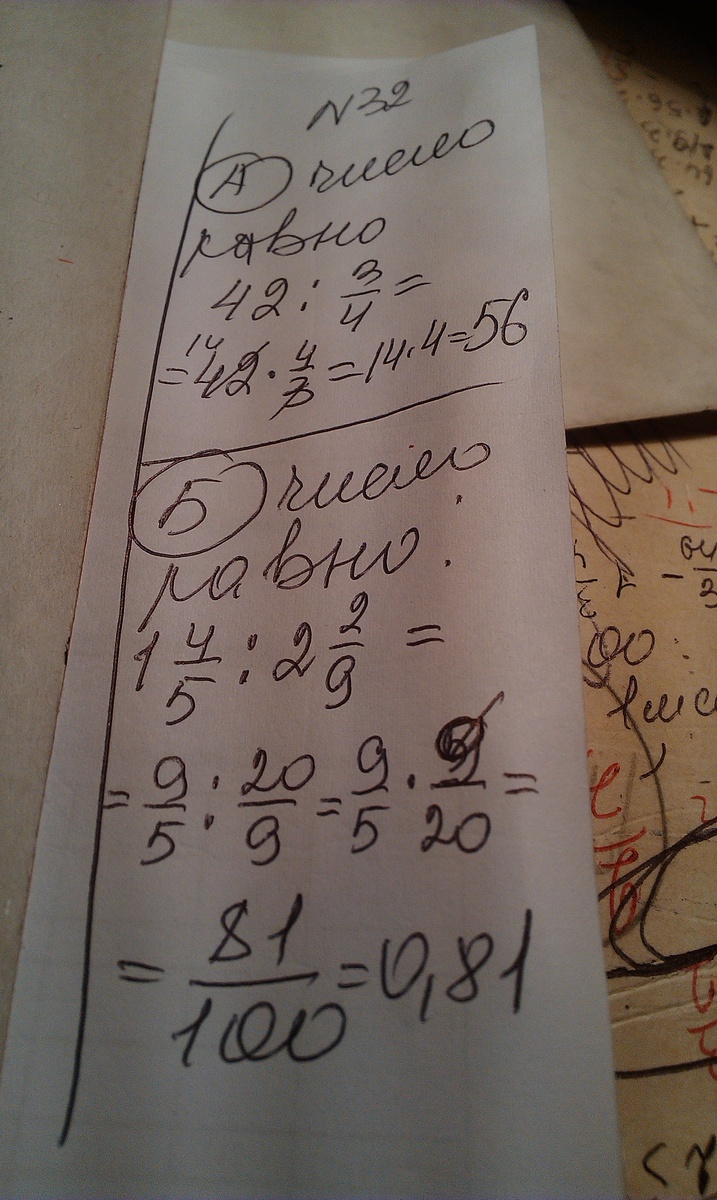 N32
А число
равно
42 : 3/4 =
= 42 · 4/3 = 14 · 4 = 56
14
Б число
равно:
1 4/5 : 2 2/9 =
= 9/5 : 20/9 = 9/5 · 9/20 =
= 81/100 = 0,81